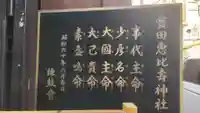 寳田恵比寿神社
事代主命
少彦名命
大國主命
大己貴命
素盞嗚命
昭和六十年六月吉日
鎌和會